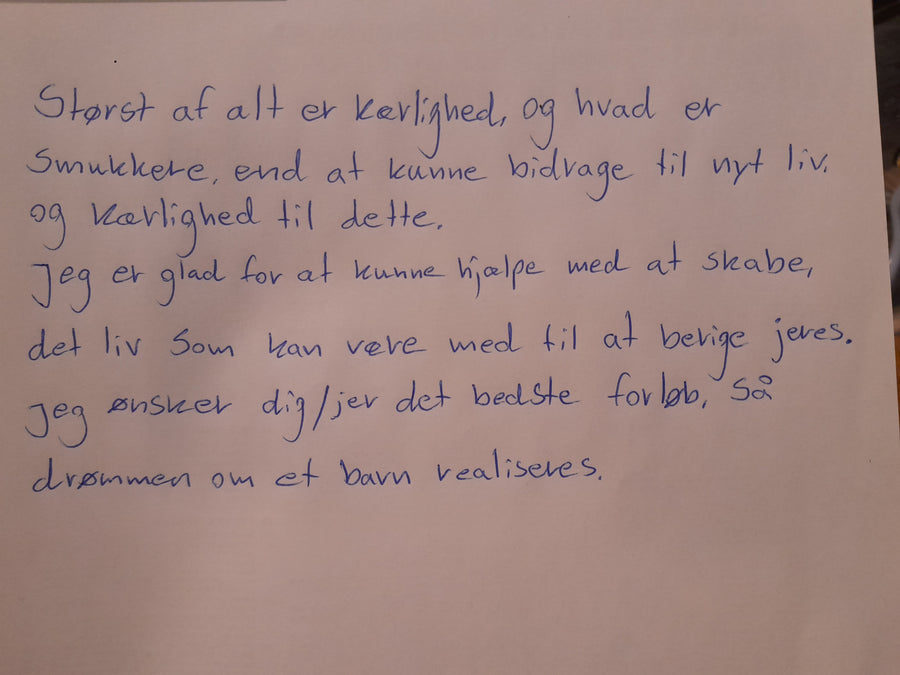 Størst af alt er kærlighed, og hvad er
smukkere, end at kunne bidrage til nyt liv.
og kærlighed til dette.
Jeg er glad for at kunne hjælpe med at skabe,
det liv som kan være med til at berige jeres.
Jeg ønsker dig/jer det bedste forløb, så
drømmen om et barn realiseres.